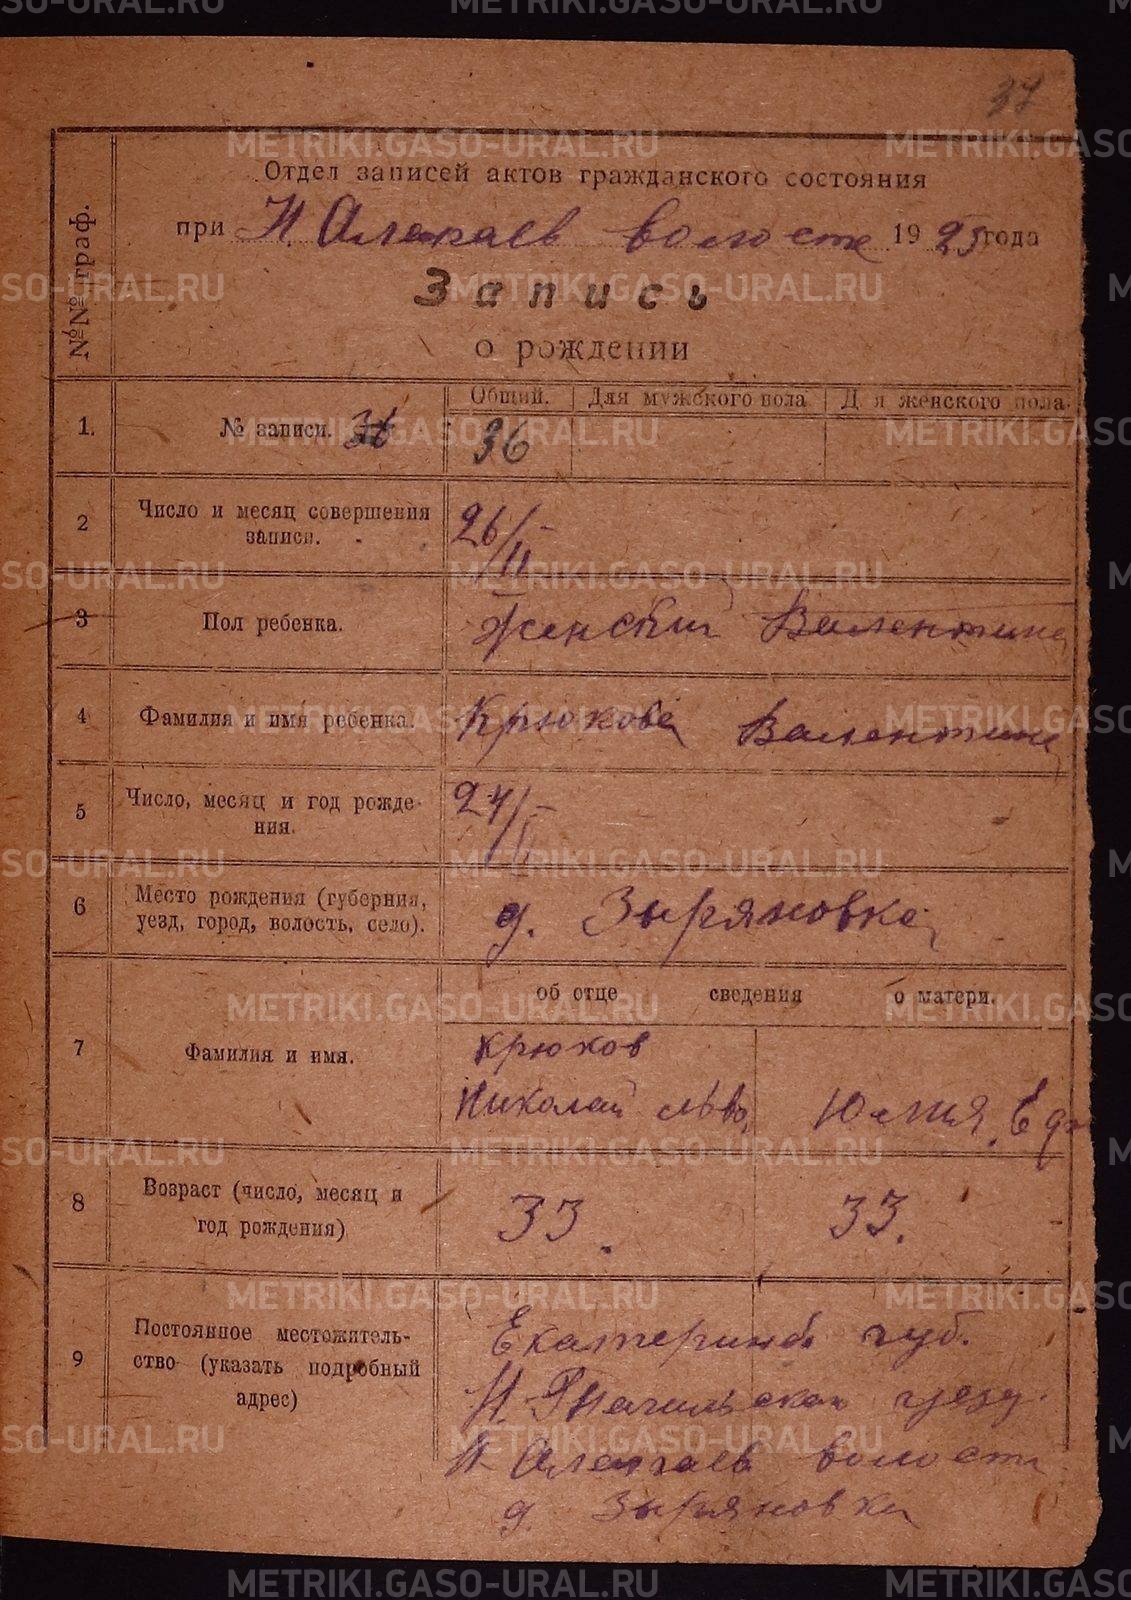 37
Отдел записей актов гражданского состояния
при Н. Алапаев волости 1925 года
Запись
о рождении
№№ граф.
Общий. Для мужского пола Для женского пола.
1. № записи. 36 36
2 Число и месяц совершения
записи. 26/II
3 Пол ребенка. Женский Валентина
4 Фамилия и имя ребенка. Крюкова Валентина
5 Число, месяц и год рожде-
ния. 24/I
6 Место рождения (губерния,
уезд, город, волость, село). д. Зыряновка
об отце сведения о матери.
7 Фамилия и имя. Крюков
Николай Льво. Юлия. Е
8 Возраст (число, месяц и
год рождения) 33. 33.
9 Постоянное местожитель-
ство (указать подробный
адрес)
Екатеринб. губ.
Н. Тагильскаи уезд.
Н. Алапаев волости
д. Зыряновка
METRIKI.GASO-URAL.RU